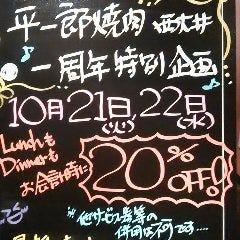 平一郎焼肉 西大井
一周年特別企画
10月21日22日
(火) (水)
Lunchも
Dinnerも
お会計時に
20%
off!!
※他サービス券等の
併用は不可です....